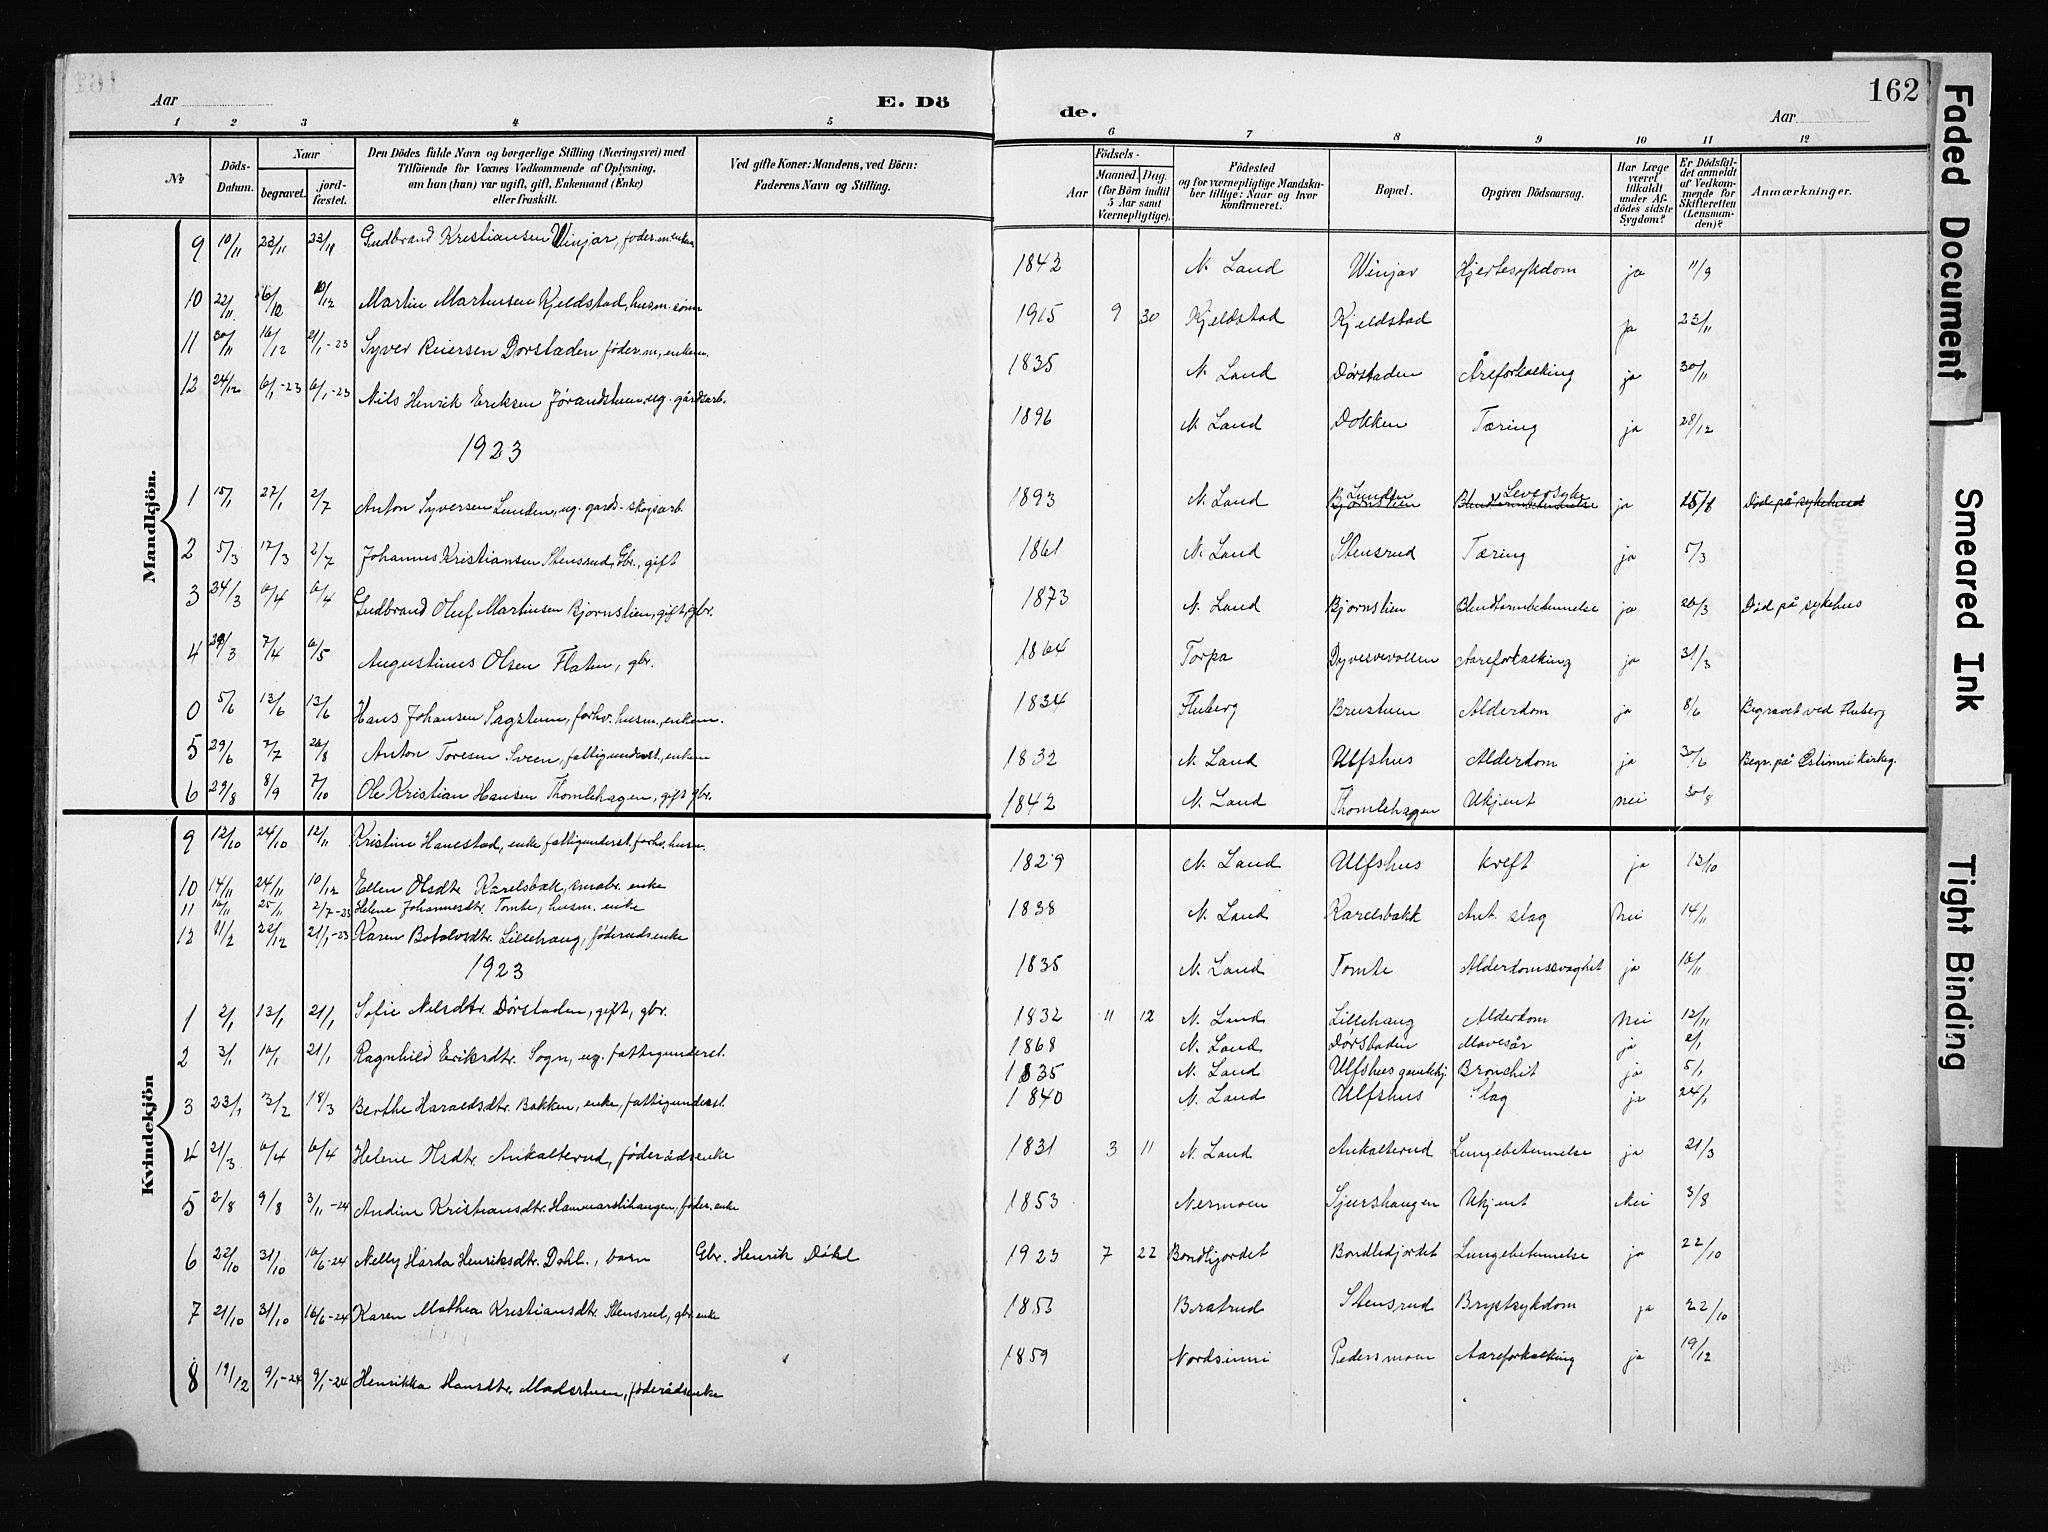 Aar
E. Dö
de.
Aar
162
1 2 3 4 5 6 7 8 9 10 11 12
№
Döds-Datum.
Naar
begravet. jord-fæstet.
Den Dödes fulde Navn og borgerlige Stilling (Næringsvei) med
Tilföiende for Voxnes Vedkommende af Oplysning,
om han (hun) var ugift, gift, Enkemand (Enke)
eller fraskilt.
Ved gifte Koner: Mandens, ved Börn:
Faderens Navn og Stilling.
Födsels-
Aar
Maaned. Dag.
(for Börn indtil
5 Aar samt
Værnepligtige).
Födested
og for værnepligtige Mandska-
ber tillige: Naar og hvor
konfirmeret.
Bopæl.
Opgiven Dödsaarsag.
Har Læge
været
tilkaldt
under Af-
dödes sidste
Sygdom?
Er Dödsfal-
det anmeldt
af Vedkom-
mende for
Skifteretten
(Lensman-
den)?
Anmærkninger.
Mandkjön.
9 10/11 23/11 23/11 Gudbrand Kristiansen Winjar, føder.m. enkem. 1842 N. Land Winjar Hjertesykdom ja 11/9
10 22/11 16/12 10/12 Martin Martinsen Kjeldstad, husm. sønn 1915 9 30 Kjeldstad Kjeldstad ja 23/11
11 30/11 16/12 21/1-23 Syver Reiersen Dorstaden føder.m, enkem. 1835 N. Land Dørstaden Åreforkalking ja 30/11
12 24/12 6/1-23 6/1-23 Nils Henrik Eriksen Jørandstuen, ug. gårdsarb. 1896 N. Land Dokken Tæring ja 28/12
1923
1 15/1 27/1 2/7 Anton Syversen Lunden, ug. gards- skogsarb 1893 N. Land Bjørnstien Lunden Blindtarmbetændelse Leversyke ja 15/8 Død på sykehuset
2 5/3 17/3 2/7 Johannes Kristiansen Stensrud, Gbr., gift 1861 N. Land Stensrud Tæring ja 5/3
3 24/3 6/4 6/4 Gudbrand Oluf Martinsen Bjørnstien, gift, gbr. 1873 N. Land Bjornstien Blindtarmbetennelse ja 26/3 Død på sykehus
4 29/3 7/4 6/5 Augustinus Olsen Flaten, gbr. 1864 Torpa Dyvesvevollen Aareforkalking ja 31/3
0 5/6 13/6 13/6 Hans Johansen Sagstuen, forhv. husm., enkem. 1834 Fluberg Brustuen Alderdom ja 8/6 Begravet ved Fluberg
5 29/6 7/7 26/8 Anton Toresen Sveen, fattigunderst., enkem 1832 N. Land Ulfshus Alderdom ja 30/6 Begr. på Østsinni Kirkeg.
6 29/8 8/9 7/10 Ole Kristian Hansen Thomlehagen, gift gbr. 1842 N. Land Thomlehagen Ukjent nei 30/8
Kvindekjön
9 12/10 24/10 12/11 Kristine Hanestad, enke fattigunderst. forhv. husm. 1829 N. Land Ulfshus Kreft ja 13/10
10 14/11 24/11 10/12 Ellen Olsdtr. Karelsbæk, småbr. enke 1838 N. Land Karelsbakk Ant. slag Nei 14/11
11 16/11 25/11 2/7-23 Helene Johannesdtr. Tomte, husm. enke 1835 N. Land Tomte Alderdomssvaghet ja 16/11
12 11/2 22/12 21/1-23 Karen Botolvsdtr. Lillehaug, føderådsenke 1832 11 12 N. Land Lillehaug Alderdom Nei 12/11
1923
1 2/1 13/1 21/1 Sofie Nilsdtr. Dørstaden, gift, gbr. 1868 N. Land Dørstaden Mavesår ja 2/1
2 3/1 16/1 21/1 Ragnhild Eriksdtr. Sogn, ug. fattigunderst. 1835 N. Land Ulfshus gamlehj Bronchit ja 5/1
3 23/1 3/2 18/3 Berthe Haraldsdtr. Bakken, enke, fattigunderst. 1840 N. Land Ulfshus Slag ja 24/1
4 21/3 6/4 6/4 Helene Olsdtr. Ankalterud, føderådsenke 1831 3 11 N. Land Ankalterud Lungebetennelse ja 21/3
5 2/8 9/8 3/11-24 Andine Kristiansdtr. Hammarstihaugen, føder.enke 1853 Nermoen Sjurshaugen Ukjent Nei 3/8
6 22/10 31/10 16/6-24 Nelly Harda Henriksdtr. Dahl., barn Gbr. Henrik Døhl 1923 7 22 Bondlijordet Bondlidjordet Lungebetennelse ja 22/10
7 21/10 31/10 16/6-24 Karen Mathea Kristiansdtr. Stensrud, gbr. enke 1853 Beratrud Stensrud Brystsykdom ja 22/10
8 19/12 9/1-24 9/1-24 Henrikka Hansdtr. Madsstuen, føderådsenke 1859 Nordsinni Pedersmoen Aareforkalking ja 19/12
Faded Document
Smeared Ink
Tight Binding